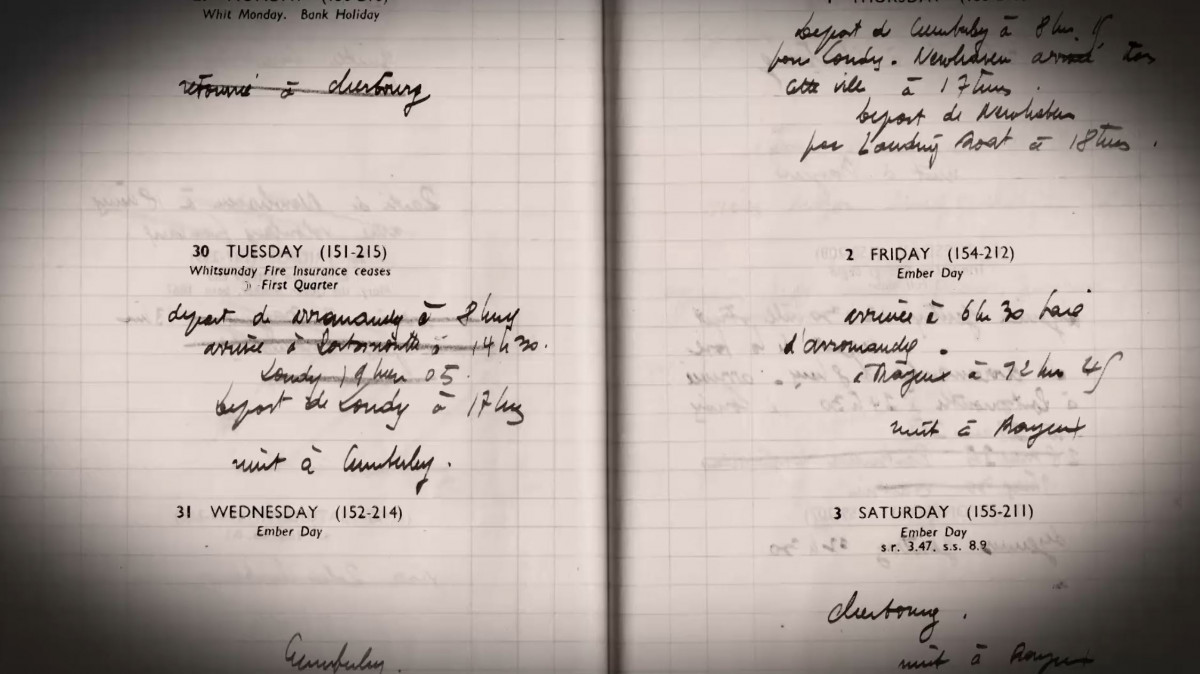 Whit Monday. Bank Holiday
retourné à cherbourg
30 TUESDAY (151-215)
Whitsunday Fire Insurance ceases
☽ First Quarter
depart de arromandy à 8 hrs
arrivée à Portsmouth à 14 h 30.
Londy 19 hrs 05.
Depart de Londy à 17 hrs
nuit à Cumberley.
31 WEDNESDAY (152-214)
Ember Day
Cumberley.
THURSDAY
Depart de Cumberley à 8 hrs
pour Londy. Newhaven arrivé
cette ville à 17 hrs.
Depart de Newhaven
par Landing Boat à 18 hrs.
2 FRIDAY (154-212)
Ember Day
arrivée à 6 h 30
d'arromandy.
à 12 hrs 45
nuit à Bayeux
3 SATURDAY (155-211)
Ember Day
s.r. 3.47, s.s. 8.9
cherbourg.
nuit à Bayeux